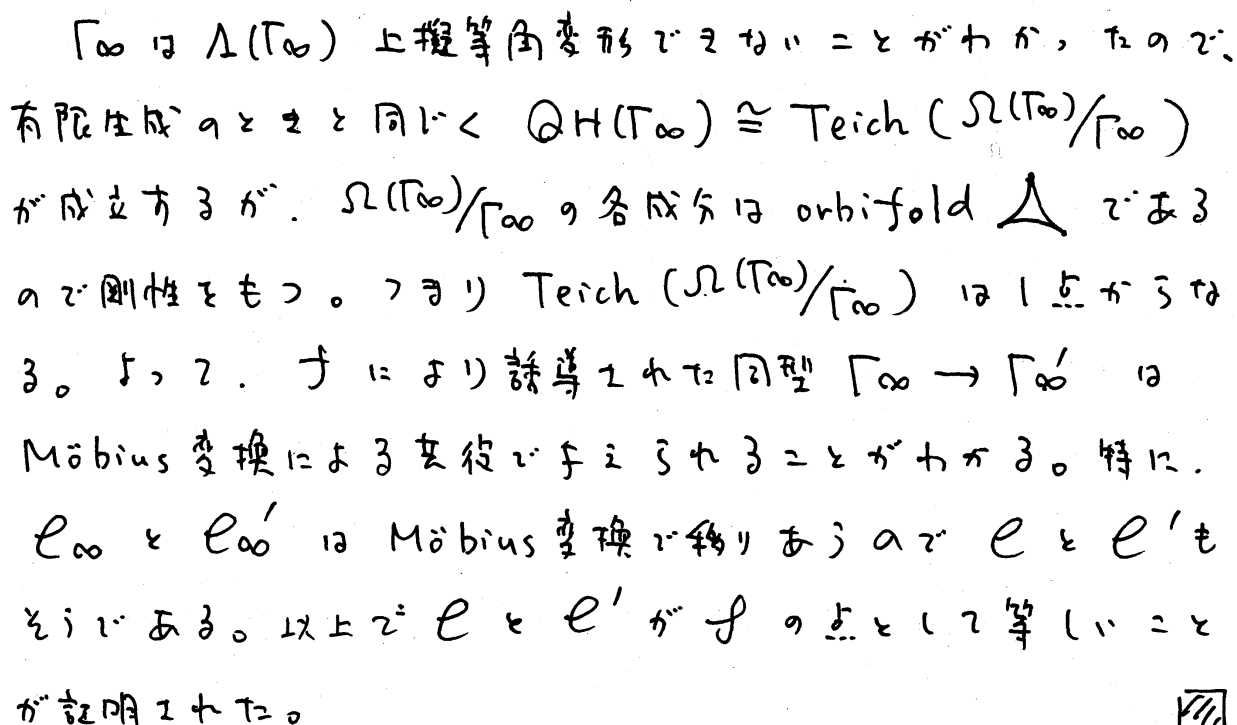 Γ∞ は Λ(Γ∞) 上擬等角変形できないことがわかったので、
有限生成のときと同じく QH(Γ∞) ≅ Teich (Ω(Γ∞)/Γ∞)
が成立するが. Ω(Γ∞)/Γ∞ の各成分は orbifold △ である
ので剛性をもつ。つまり Teich (Ω(Γ∞)/Γ∞) は1点からな
る。よって. f により誘導された同型 Γ∞ → Γ∞′ は
Möbius 変換による共役で与えられることがわかる。特に.
C∞ と C∞′ は Möbius 変換で移りあうので C と C′ も
そうである。以上で C と C′ が の点として等しいこと
が証明された。